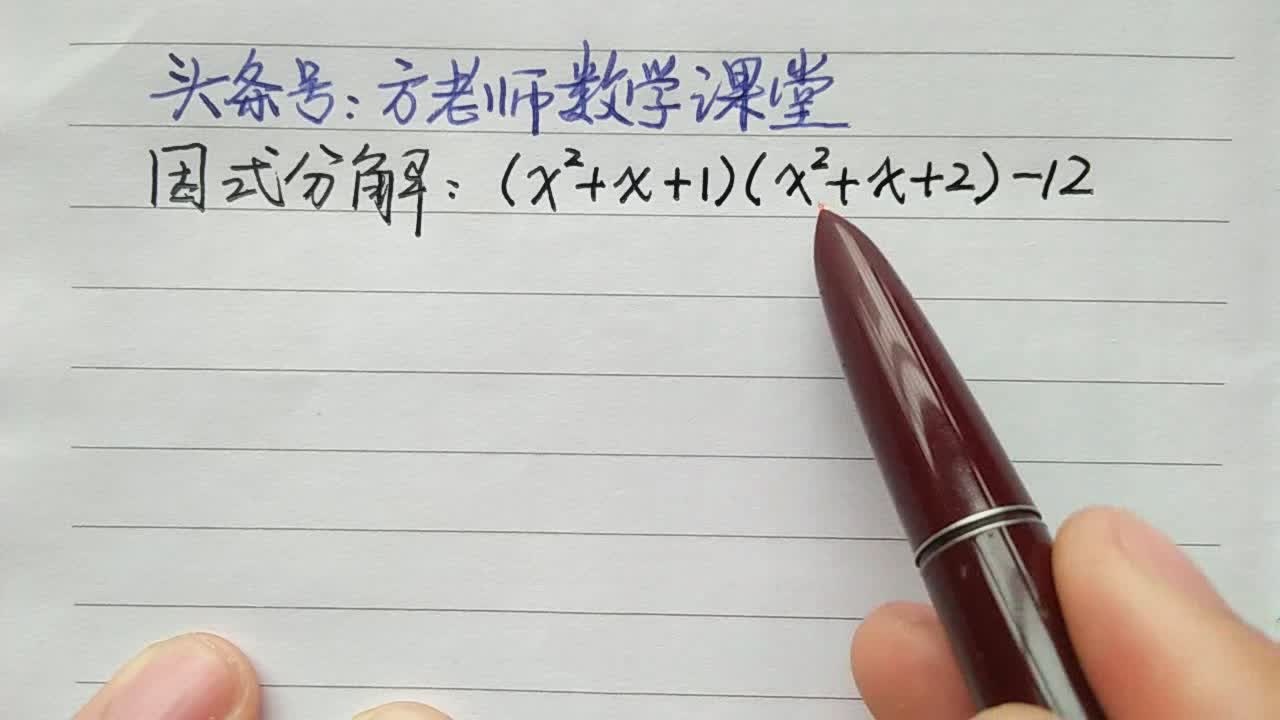 头条号:方老师数学课堂
因式分解:(x²+x+1)(x²+x+2)-12